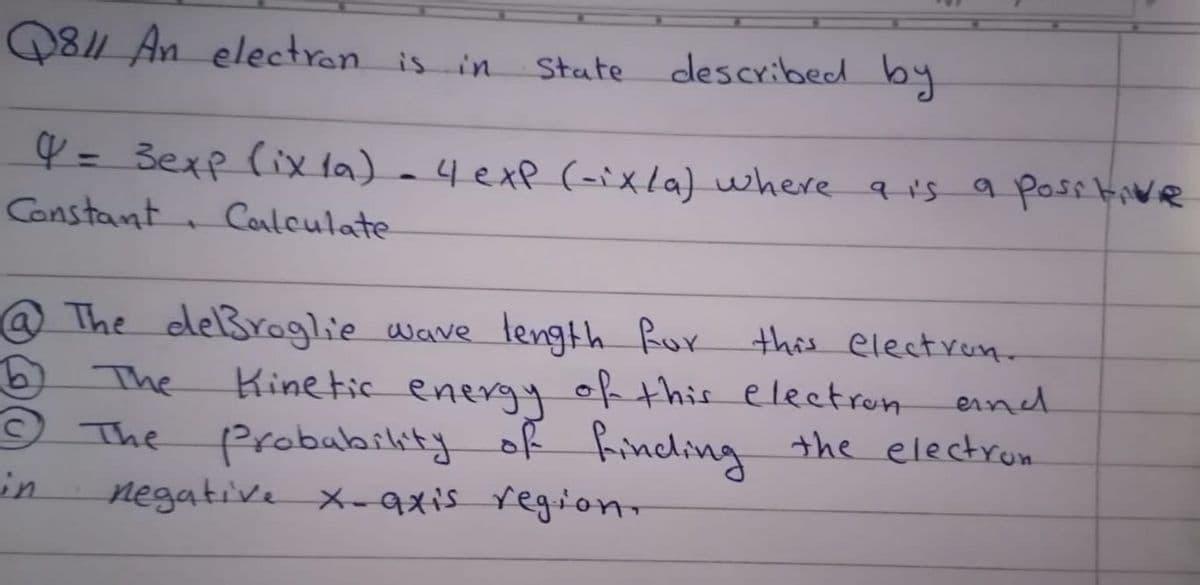 Q8// An electron is in State described by
Ψ = 3exp (ix/a) - 4 exp (-ix/a) where a is a positive
Constant. Calculate
ⓐ The deBroglie wave length for this electron.
ⓑ The Kinetic energy of this electron and
ⓒ The Probability of finding the electron
in negative x-axis region.